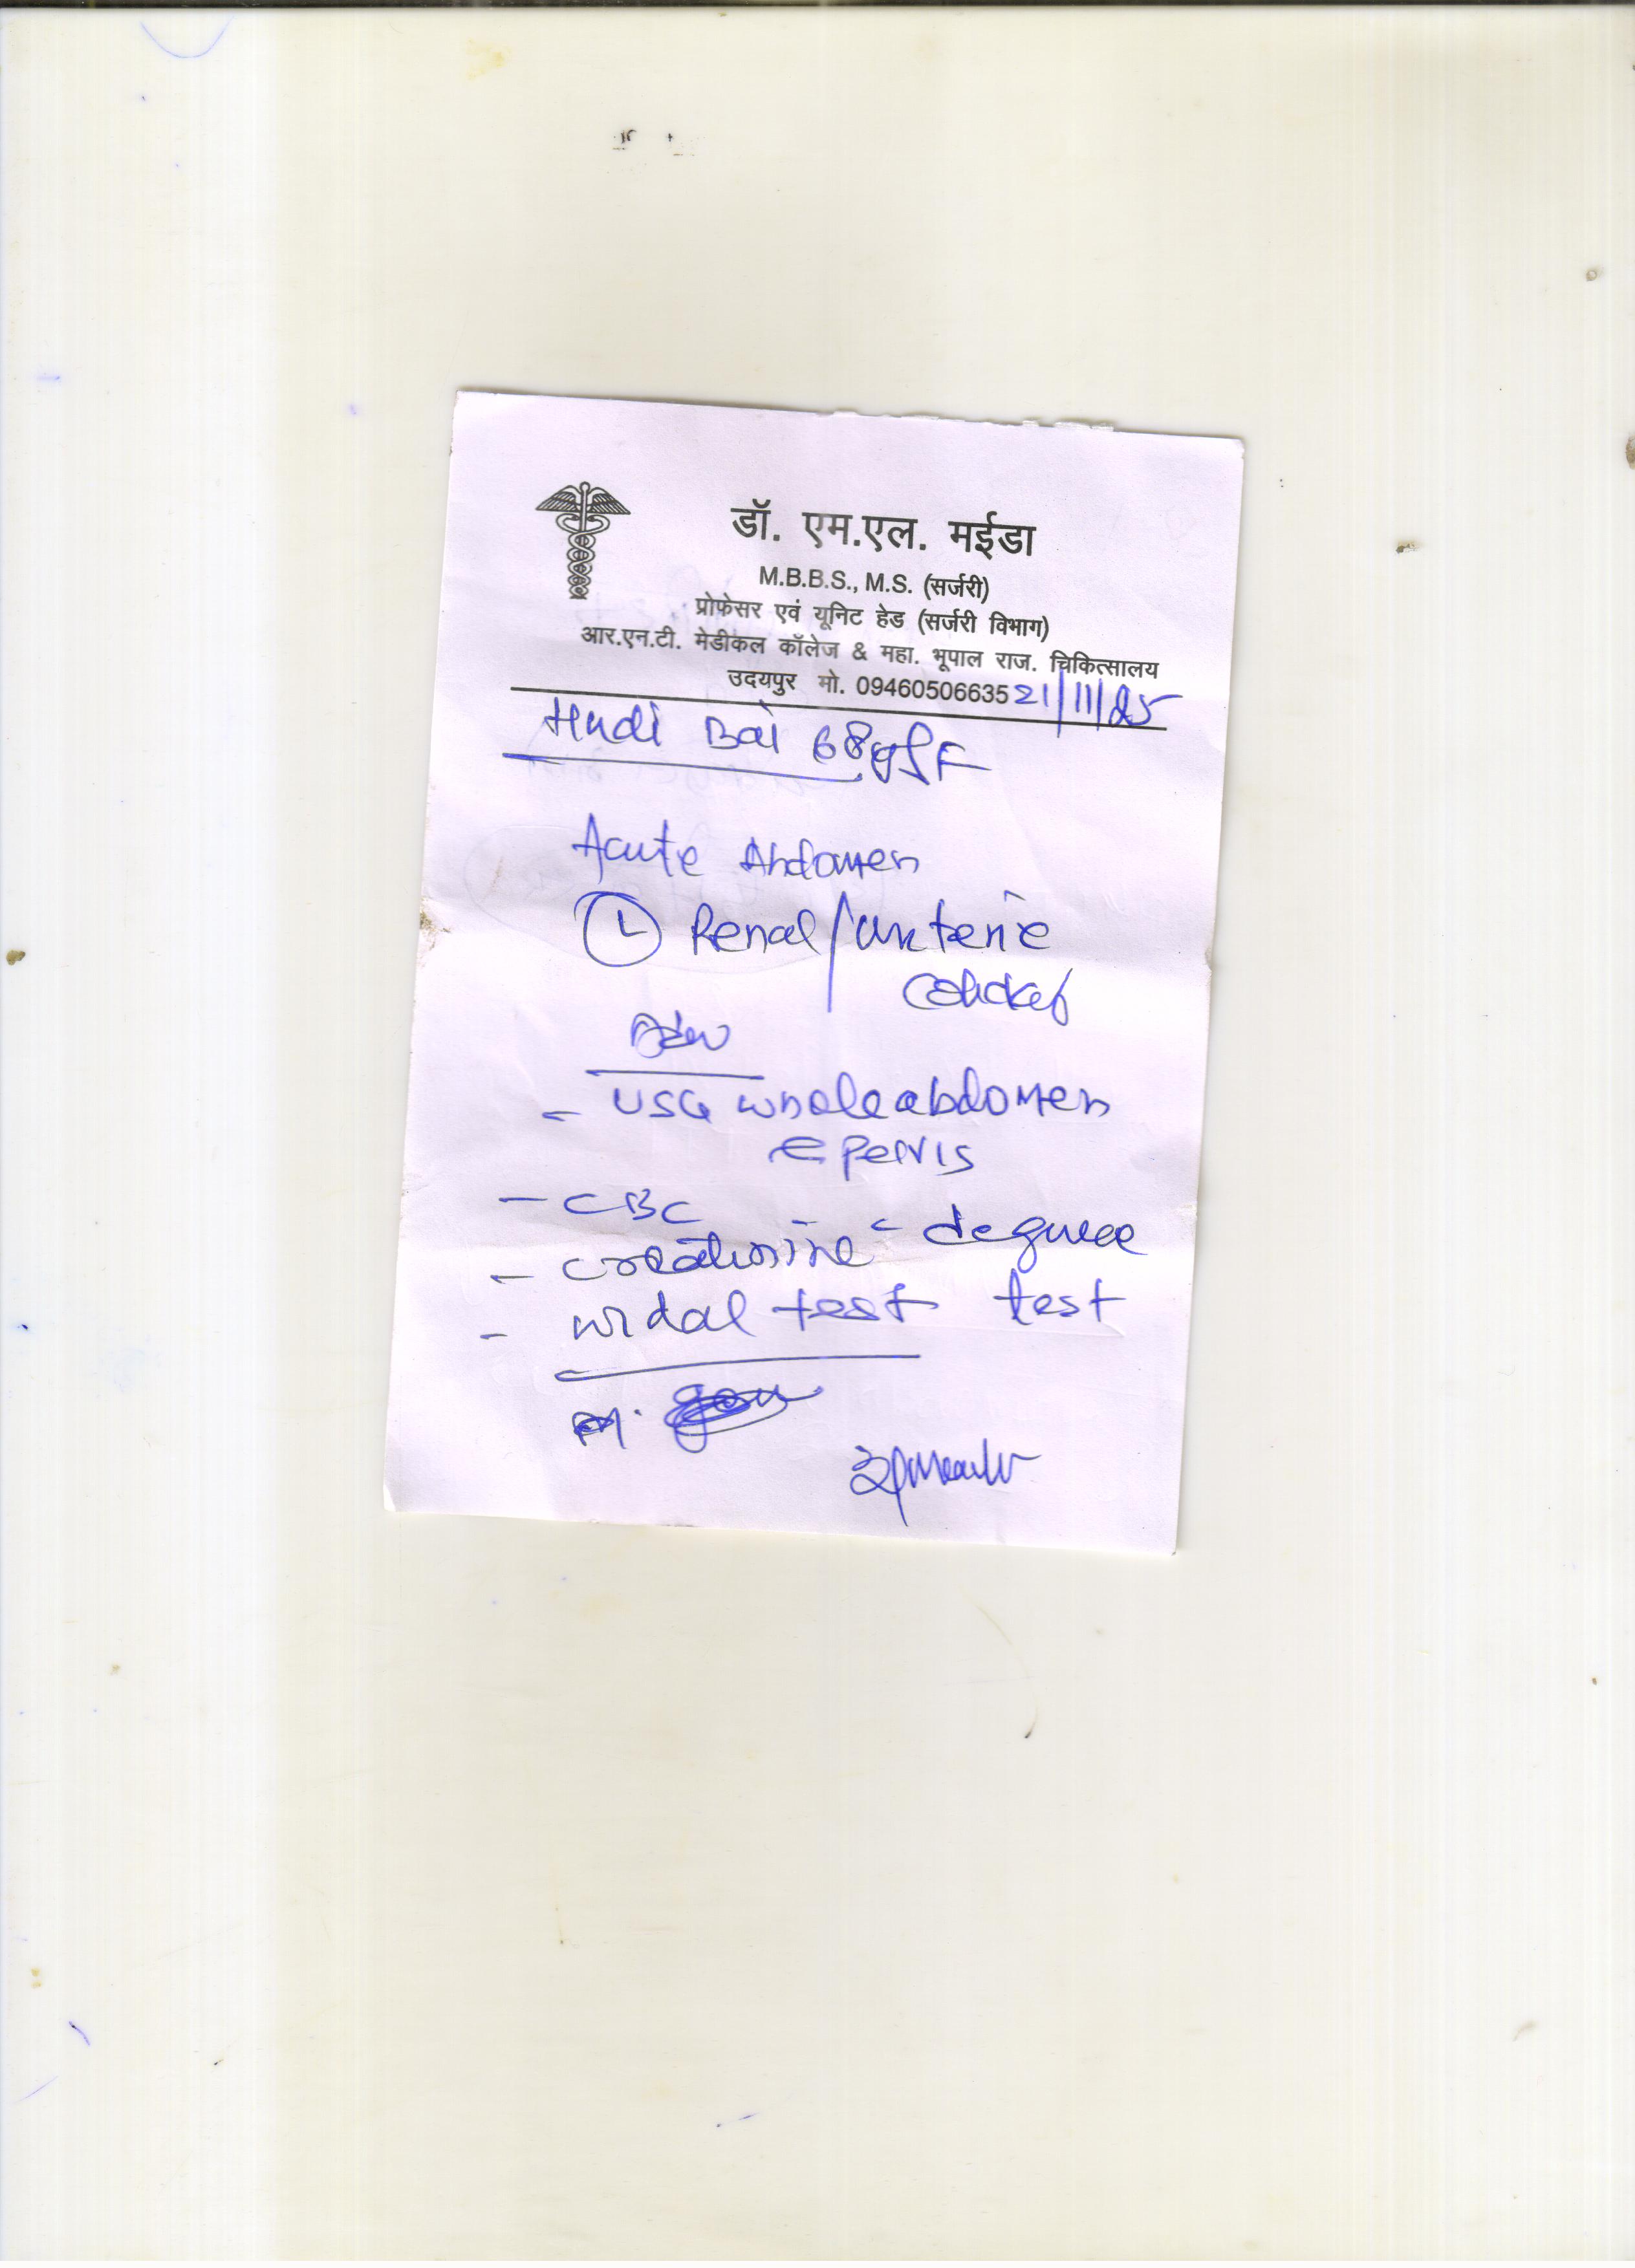 डॉ. एम.एल. मईडा
M.B.B.S., M.S. (सर्जरी)
प्रोफेसर एवं यूनिट हेड (सर्जरी विभाग)
आर.एन.टी. मेडीकल कॉलेज & महा. भूपाल राज. चिकित्सालय
उदयपुर मो. 09460506635 21/11/25
Bai 68 F
Acute Abdomen
L Renal/
Adv
- USG whole abdomen
c Pelvis
- CBC
- creatinine - dengue
- widal test test